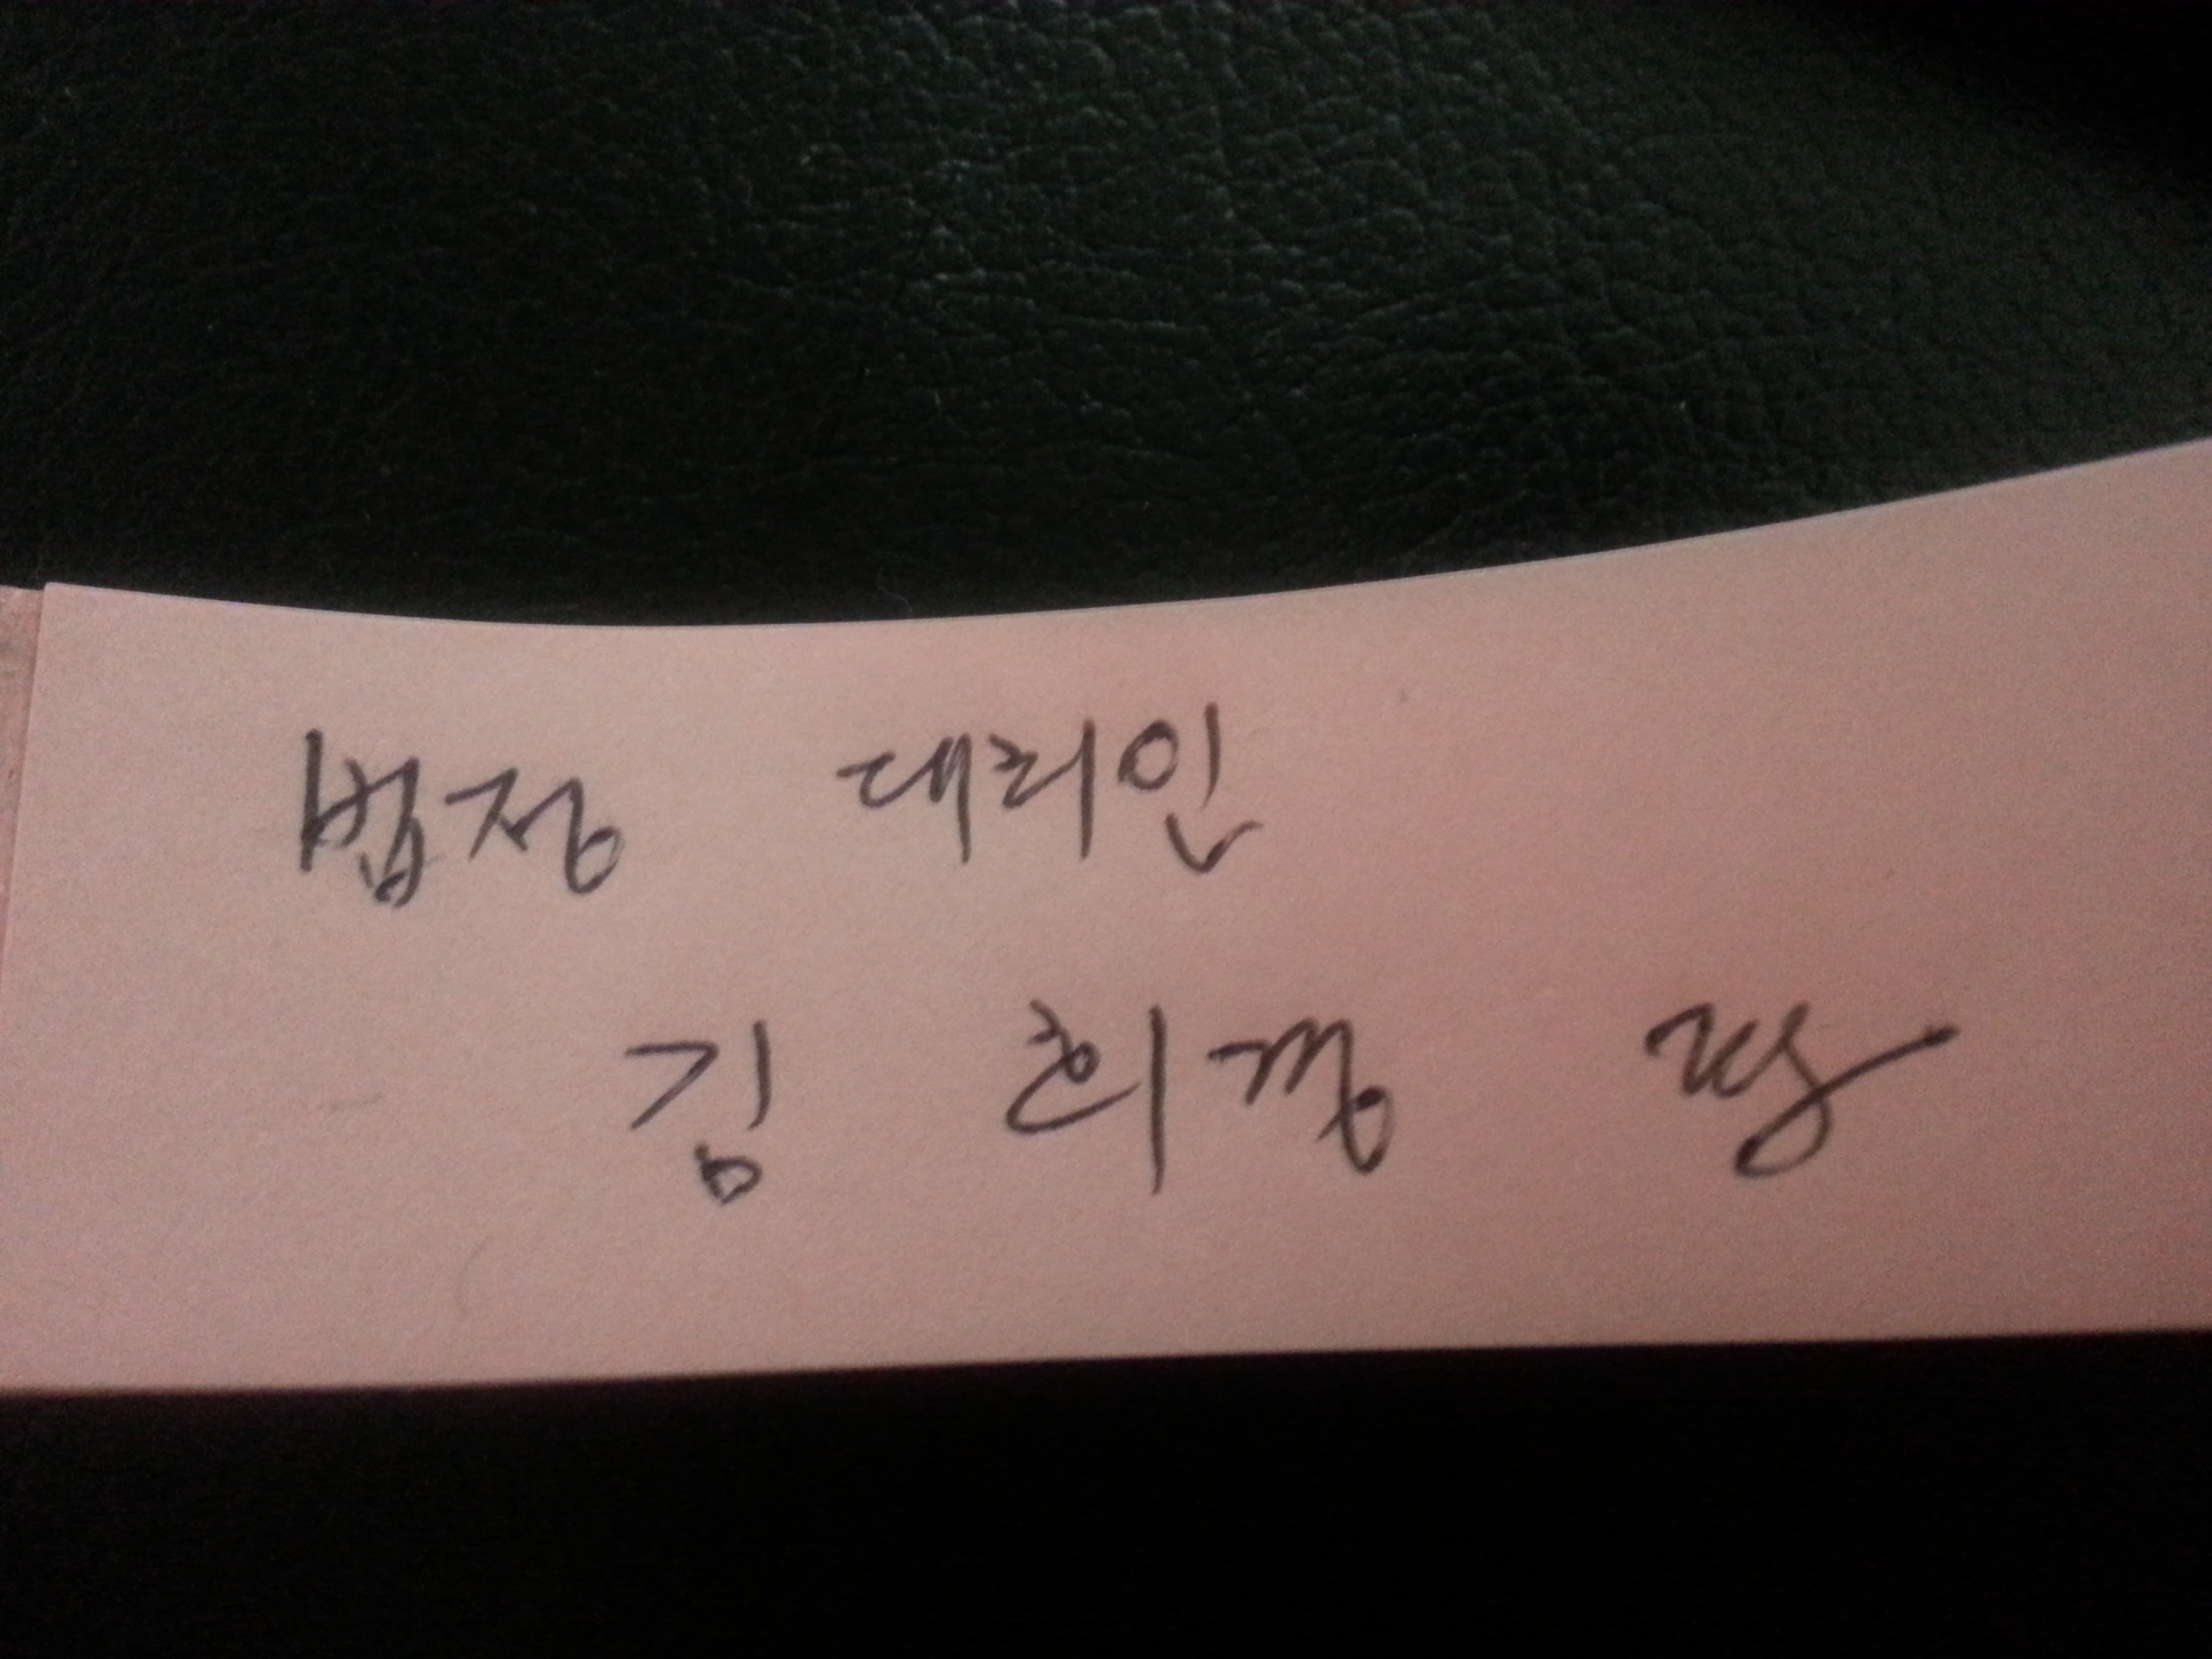 법정 대리인
김 희경